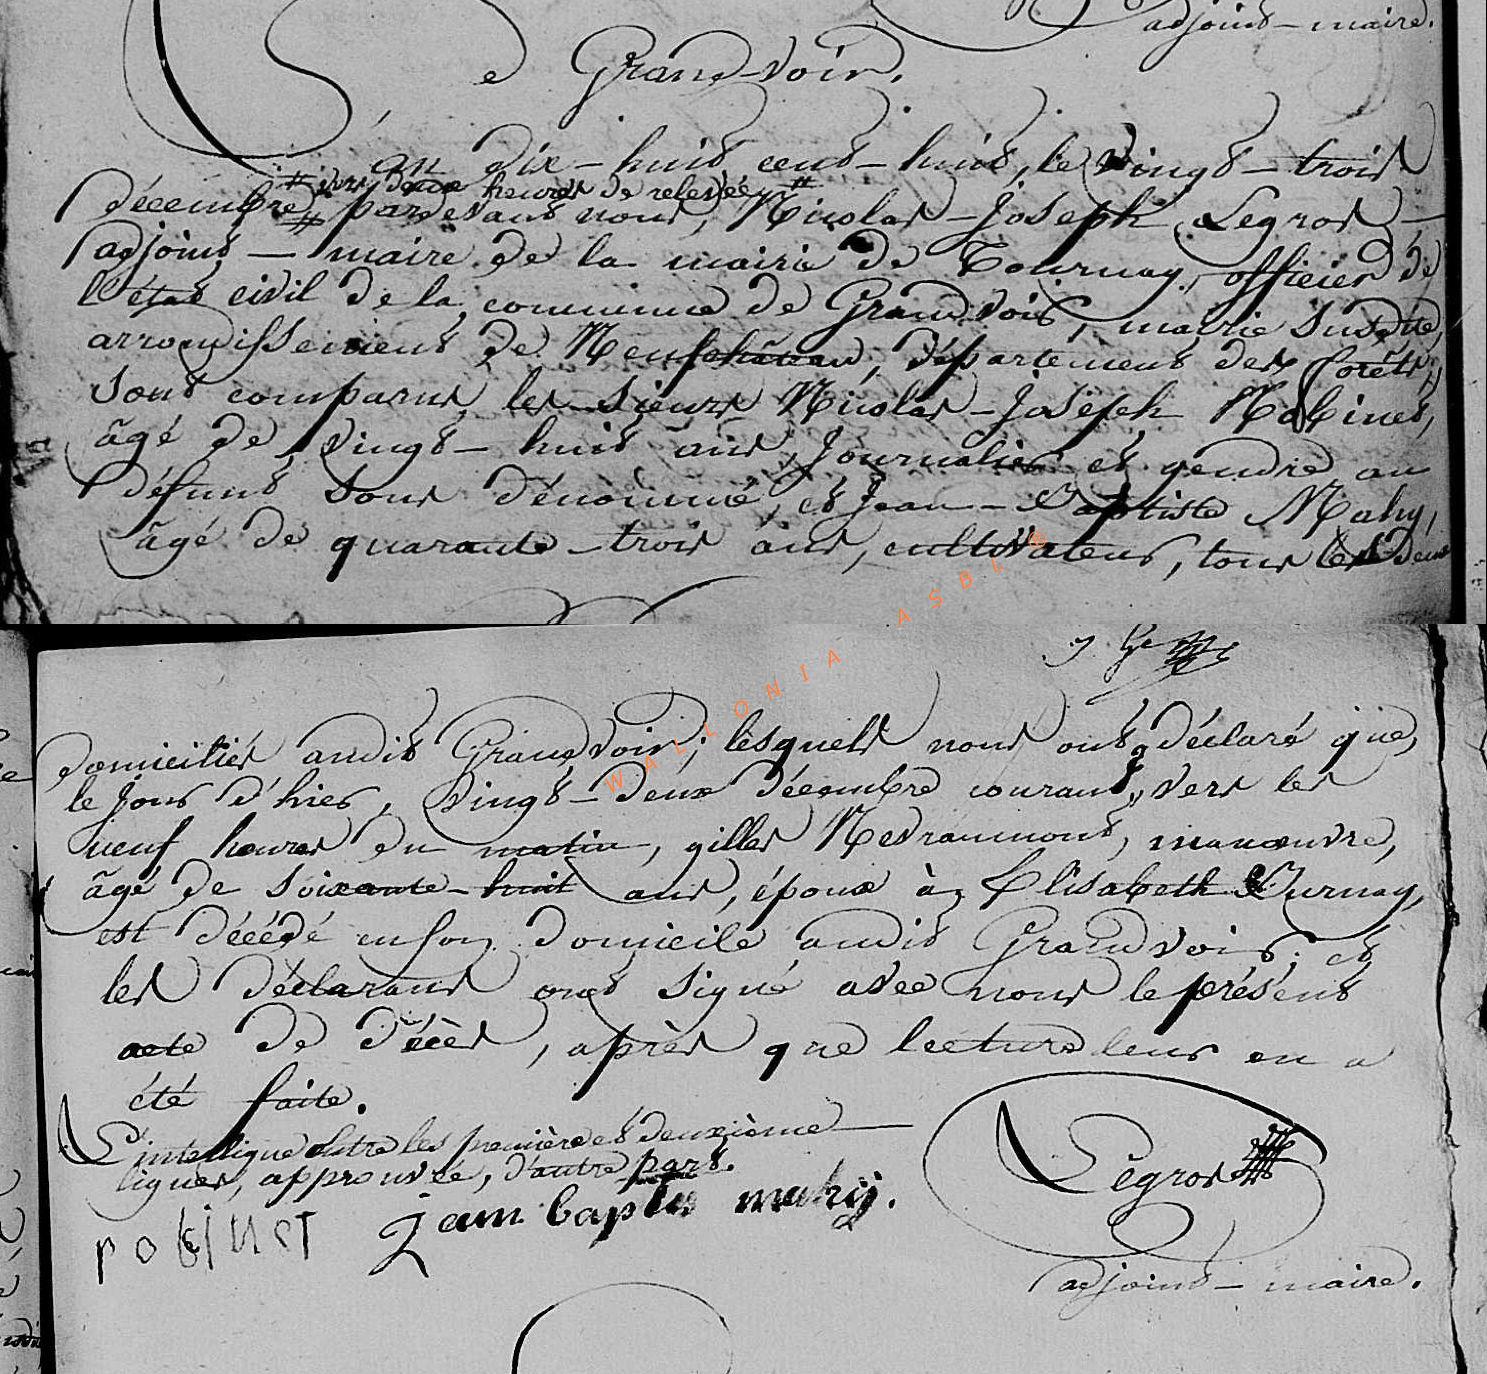 adjoint-maire.
De Grandvoir.
L'an dix-huit cent-huit, le vingt-trois
# sur deux heures de relevée #
décembre # pardevant nous, Nicolas-Joseph Legros -
adjoint-maire de la mairie de Tournay, officier de
l'état civil de la commune de Grandvoir, mairie susdite,
arrondissement de Neufchâteau, département des forêts,
sont comparus, les sieurs Nicolas-Joseph Robinet,
âgé de vingt-huit ans, journalier et gendre au
défunt sous dénommé, et Jean-Baptiste Mahy,
âgé de quarante-trois ans, cultivateur, tous les deux
domiciliés audit Grandvoir; lesquels nous ont déclaré que,
le jour d'hier, vingt-deux décembre courant, vers les
neuf heures du matin, gilles Nevraumont, manœuvre,
âgé de soixante-huit ans, époux à Elisabeth Burnay,
est décédé en son domicile audit Grandvoir; et
les déclarans ont signé avec nous le présent
acte de décès, après que lecture leur en a
été faite.
L'interligne entre les première et deuxième
lignes, approuvée, d'autre part.
robinet jean baptis mahÿ.
Legros
adjoint-maire.
WALLONIA ASBL